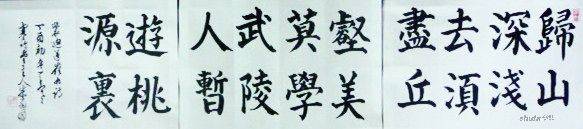 歸山
深淺
去湏
盡丘
壑美
莫學
武陵
人暫
遊桃
源裏
裴迪送崔九詩
丁酉初冬